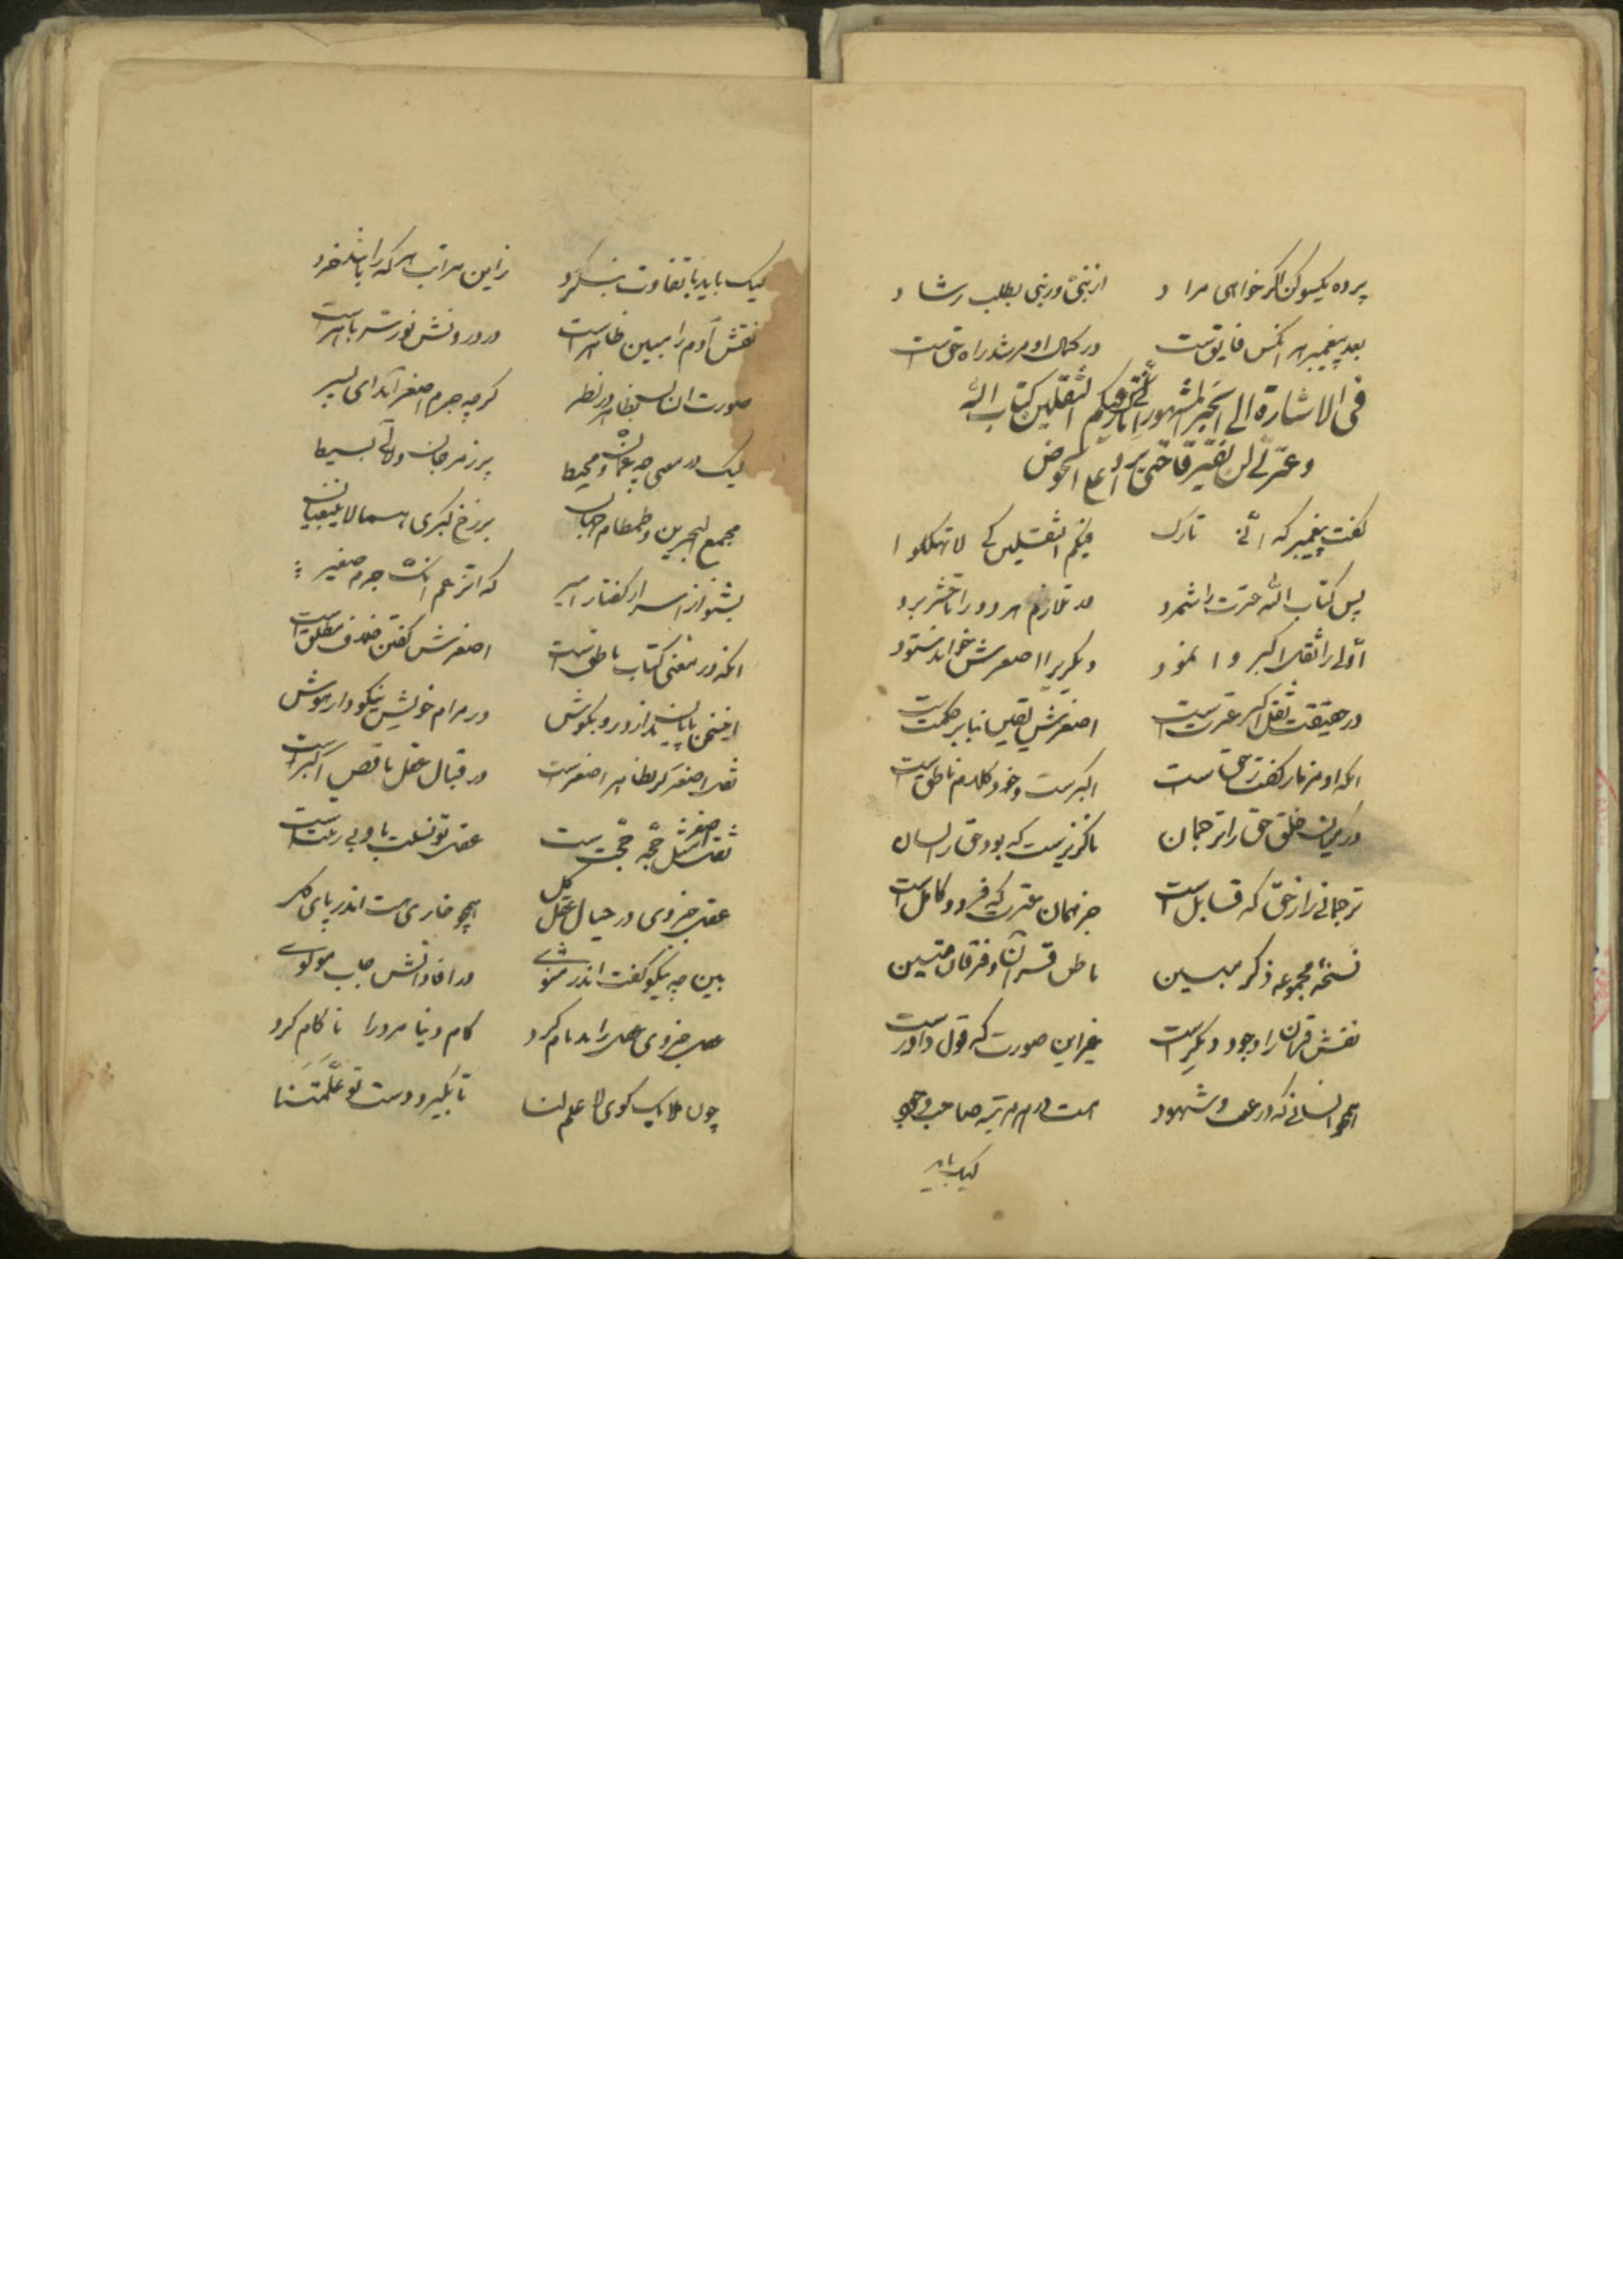 پرده یکسو کن اگر خواهی مراد از نبی در نبی بطلب رشاد
بعد پیغمبر هر انکس فایق ست در کمال او مرشد راه حق است
فی الاشارة الی الخبر المشهور انی تارک فیکم الثقلین کتاب الله
و عترتی لن یفترقا حتی یردا علی الحوض
گفت پیغمبر که انی تارک فیکم الثقلین کی لا تهلکوا
پس کتاب الله عترت را شمرد تلازم هر دو را تا حشر برد
اولی را ثقل اکبر وا نمود دیگری را اصغرش خواند ستود
در حقیقت ثقل اکبر عترت است اصغرش تعیین بنا بر حکمت است
انکه او من نار کفت حق است اکبرست و خود کلام ناطق است
در میان خلق حق را ترجمان ناگزیرست که بود حق را لسان
ترجمانی را ز حق که قابل است جز همان عترت که فرد و کامل است
نسخه مجموعه ذکر مبین ناطق قرآن و فرقان متین
نقش قرآن را وجود دیگر است غیر این صورت که قول داور است
همچو انسانی که در غیب و شهود هست در هر مرتبه صاحب وجود
لیک باید
لیک باید با تفاوت بنگرد زاین مراتب هر که را باشد خرد
نقش آدم را ببین ظاهر است در درونش نور سر باهر است
صورت انسان بظاهر در نظر گرچه جرم اصغر آمد ای پسر
لیک در معنی چه عمان و محیط پر ز مرجان و لآلی بسیط
مجمع البحرین و طمطام جهان برزخ کبری بینهما لا یبغیان
بشنو از اسرار گفتار امیر که اتزعم انک جرم صغیر
انکه در معنی کتاب ناطق است اصغرش گفتن خلاف مطلق است
این سخن پایان ندارد رو بکوش در مرام خویش نیکو دار هوش
ثقل اصغر گر بظاهر اصغر است در قبال عقل ناقص اکبر است
ثقل اصغر حجه حجت ست عقل تو نسبت باو بی ربت است
عقل جزوی در حیال عقل کل همچو خاری هست اندر پای گل
بین چه نیکو گفت اندر مثنوی در افاداتش جناب مولوی
عقل جزوی عقل را بدنام کرد کام دنیا مرد را ناکام کرد
چون ملایک گوی لا علم لنا تا بگیرد دست تو علمتنا